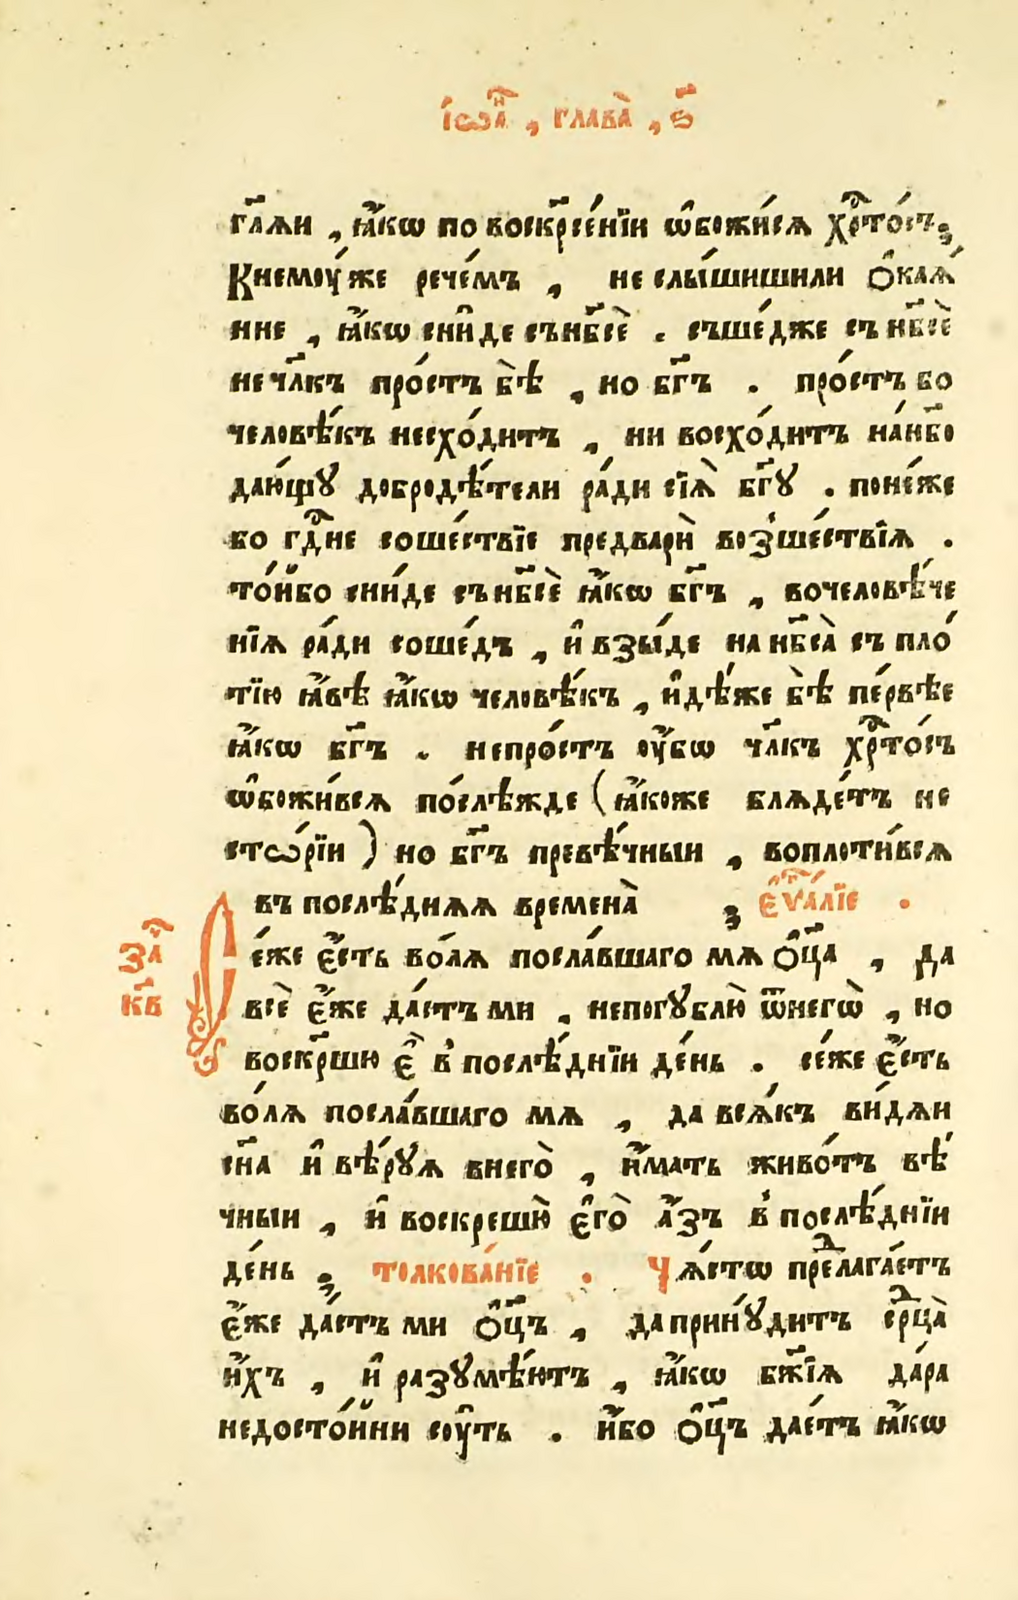 і҆ѡа́н , глава̀ , ѕ҃
гл҃ѧи , ꙗ҆́кѡ по воскр҃се́нїи ѡ҆божи́сѧ хрⷭ҇то́съ ,
Кнемоу́же рече́мъ , не слы́шишили ѻ҆каѧ́
нне , ꙗ҆́кѡ сни́де съ нб҃сѐ . съше́дже съ нб҃сѐ
не чл҃къ про́стъ бѣ̀ , но бг҃ъ . про́стъ бо
человѣ́къ несхо́дитъ , ни восхо́дитъ на́нб҃о
даю́щꙋ добродѣ́тели ра́ди сїѧ̀ бг҃ꙋ . поне́же
бо гдⷭ҇не соше́ствїе предварѝ возше́ствїѧ .
то́йбо сни́де съ нб҃сѐ ꙗ҆́кѡ бг҃ъ , вочеловѣ́че
нїѧ ра́ди соше́дъ , и҆ взы́де на нб҃са̀ съ пло́
тїю ꙗ҆́вѣ ꙗ҆́кѡ человѣ́къ , и҆дѣ́же бѣ̀ пе́рвѣе
ꙗ҆́кѡ бг҃ъ . непро́стъ оу҆́бѡ чл҃къ хрⷭ҇то́съ
ѡ҆божи́всѧ по́слѣжде ( ꙗ҆́коже блѧде́тъ не
сто́рїи ) но бг҃ъ превѣ́чныи , воплоти́всѧ
въ послѣ́днѧѧ времена̀ , є҆ѵⷢ҇а́лїе .
Се́же є҆́сть во́лѧ посла́вшаго мѧ ѻ҆ц҃а̀ , да
всѐ є҆́же дае́тъ ми , непогꙋблю̀ ѿнегѡ̀ , но
воскр҃шю є҆̀ в послѣ́днїи де́нь . се́же є҆́сть
во́лѧ посла́вшаго мѧ , да всѧ́къ ви́дѧи
сн҃а и҆ вѣ́рꙋѧ внего̀ , и҆́мать живо́тъ вѣ́
чныи , и҆ воскрешю̀ є҆го̀ а҆́зъ в послѣ́днїи
де́нь , толкова́нїе . Чѧ́стѡ преⷣлага́етъ
є҆́же дае́тъ ми ѻ҆ц҃ъ , да принꙋ́дитъ срⷣца̀
и҆́хъ , и҆ разꙋмѣ́ютъ , ꙗ҆́кѡ бж҃їѧ да́ра
недосто́йни соу́ть . и҆́бо ѻ҆ц҃ъ дае́тъ ꙗ҆́кѡ
за́ⷱ҇
кв҃